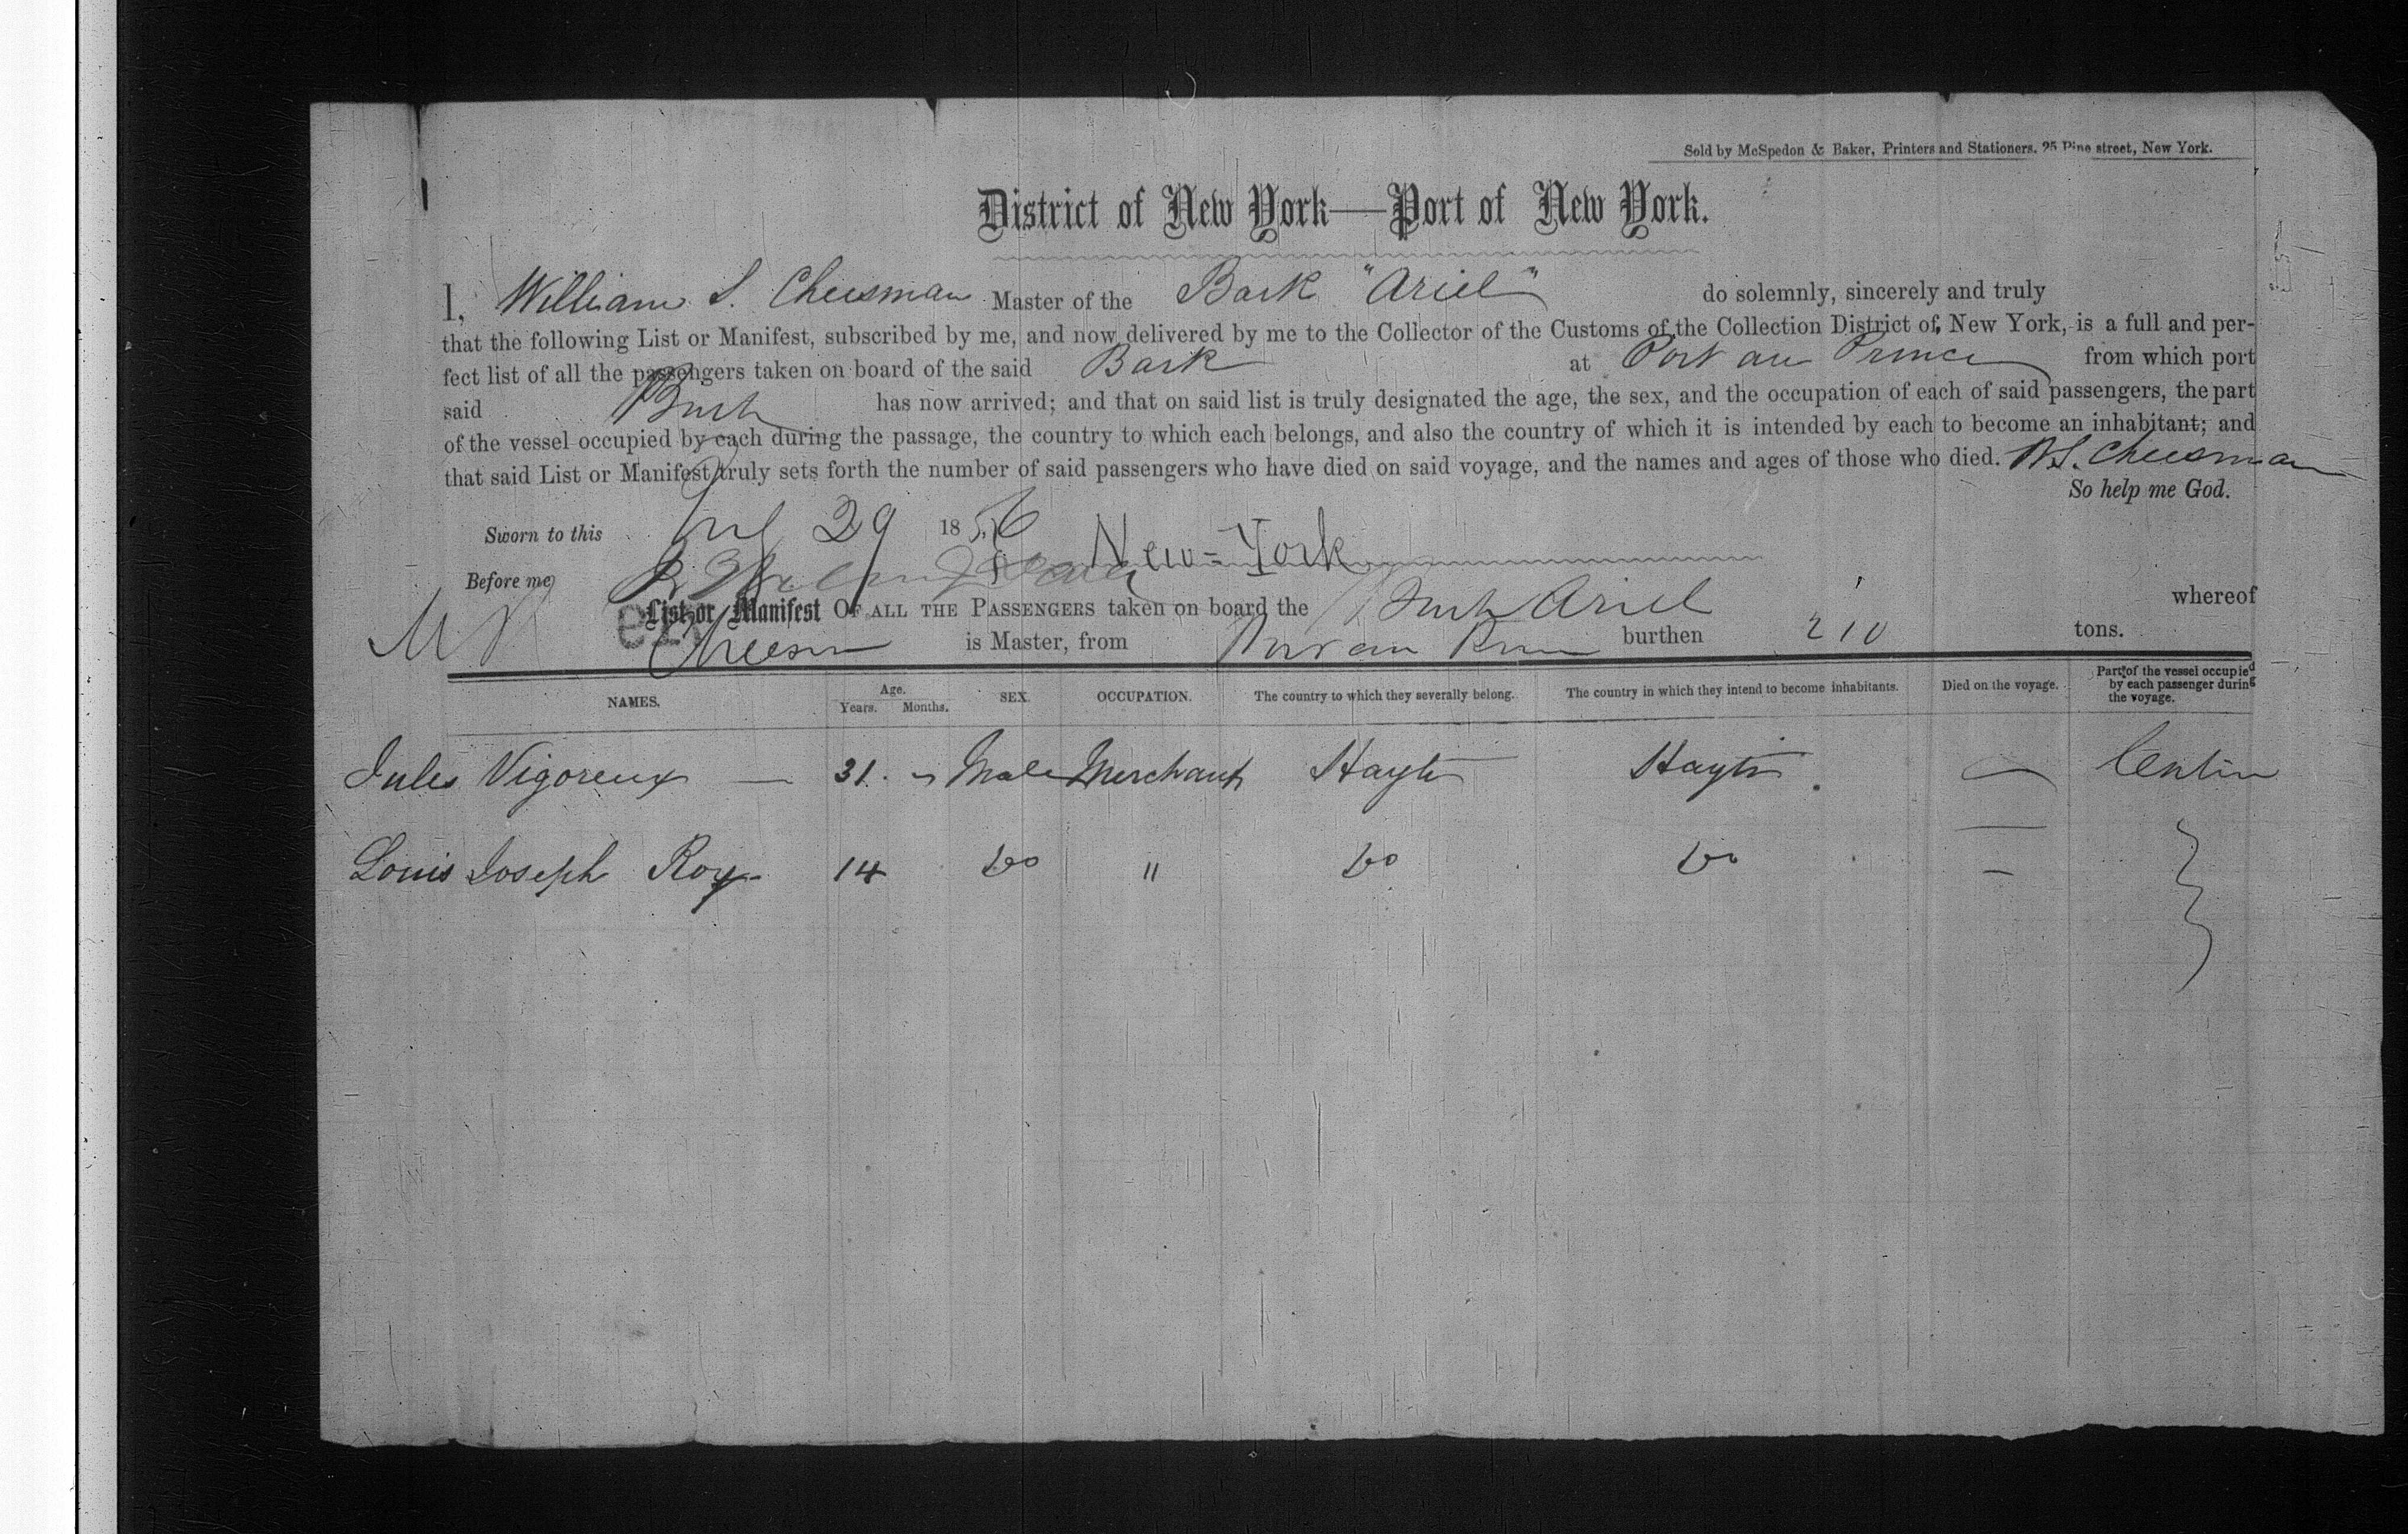 Sold by McSpedon & Baker, Printers and Stationers, 25 Pine street, New York.
District of New York—Port of New York.
I, William S. Cheesman Master of the Bark "Ariel" do solemnly, sincerely and truly
that the following List or Manifest, subscribed by me, and now delivered by me to the Collector of the Customs of the Collection District of New York, is a full and per-
fect list of all the passengers taken on board of the said Bark at Port au Prince from which port
said Bark has now arrived; and that on said list is truly designated the age, the sex, and the occupation of each of said passengers, the part
of the vessel occupied by each during the passage, the country to which each belongs, and also the country of which it is intended by each to become an inhabitant; and
that said List or Manifest truly sets forth the number of said passengers who have died on said voyage, and the names and ages of those who died. W.S. Cheesman
So help me God.
Sworn to this 29 1856 New-York
Before me
List or Manifest OF ALL THE PASSENGERS taken on board the Bark Ariel whereof
Cheesm is Master, from Port au Prin burthen 210 tons.
NAMES. Age. Years. Months. SEX. OCCUPATION. The country to which they severally belong. The country in which they intend to become inhabitants. Died on the voyage. Part of the vessel occupied by each passenger during the voyage.
Jules Vigoreux — 31 " Male Merchant Hayti Hayti — Cabin
Louis Joseph Roy 14 Do " Do Do —